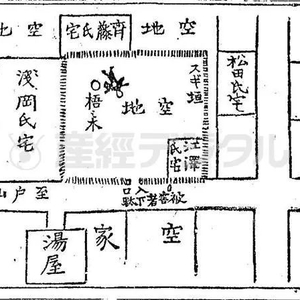 空地
齊藤氏宅
空地
松田氏宅
スギ垣
空地
江澤氏宅
淺岡氏宅
被害者下駄
入口
至戸山
空家
湯屋
産経デジタル